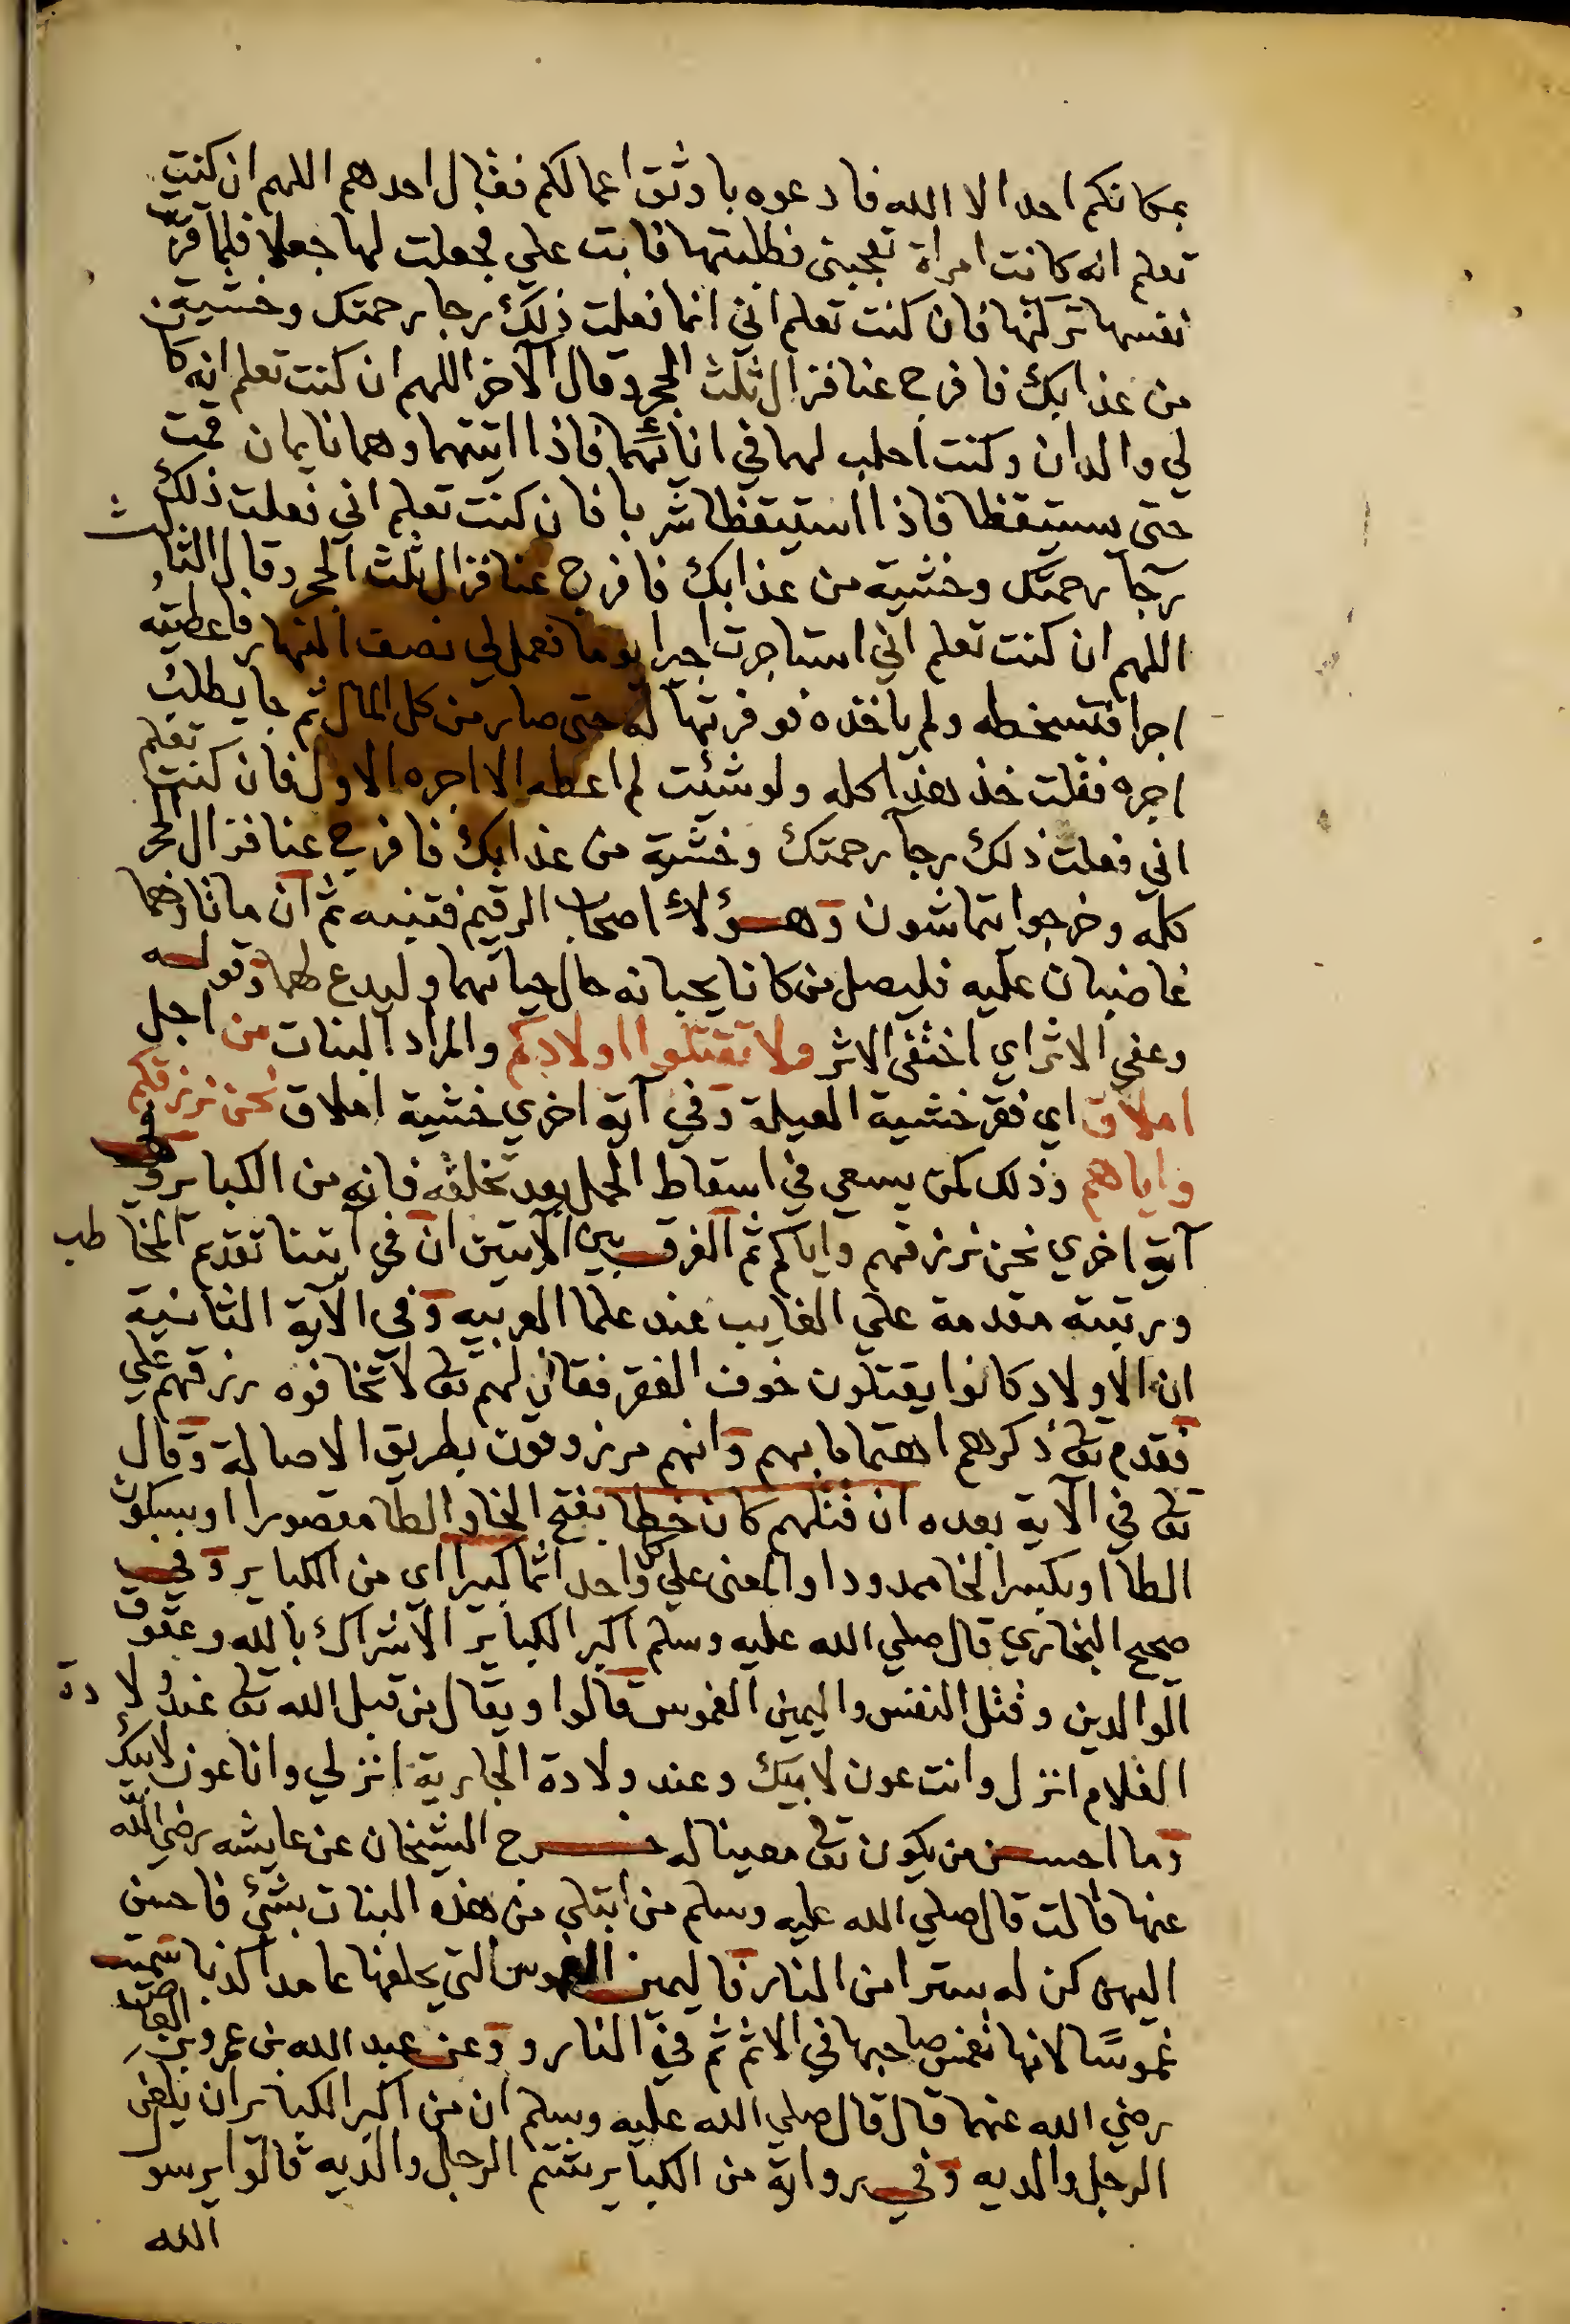 بمكانكم احدا الا الله فادعوه باوثق اعمالكم فقال احدهم اللهم ان كنت
تعلم انه كانت امراة تعجبني فطلبتها فابت علي فجعلت لها جعلا فلما قرّبت
نفسها تركتها فان كنت تعلم اني انما فعلت ذلك رجا رحمتك وخشية
من عذابك فافرج عنا فزال ثلث الحجر وقال الآخر اللهم ان كنت تعلم انه كان
لي والدان وكنت احلب لهما في انائهما فاذا اتيتهما وهما نايمان قمت
حتى يستيقظا فاذا استيقظا شربا فان كنت تعلم اني فعلت ذلك
رجآ رحمتك وخشية من عذابك فافرج عنا فزال ثلث الحجر وقال الثالث
اللهم ان كنت تعلم اني استاجرت اجيرا يوما فعمل لي نصف النهار فاعطيته
اجرا فتسخطه ولم ياخذه فوفرتها له حتى صار من كل المال ثم جا يطلب
اجره فقلت خذ هذا كله ولو شئت لم اعطه الا اجره الاول فان كنت تعلم
اني فعلت ذلك رجآ رحمتك وخشية من عذابك فافرج عنا فزال الحجر
كله وخرجوا يتماشون وهؤلاء اصحاب الرقيم فتنبه ثم ان ماتا وهما
غاضبان عليه فليصل من كانا يحبانه حال حياتهما وليدع لهما وقوله
وعفي الاثر اي اختفى الاثر ولا تقتلوا اولادكم والمراد البنات من اجل
املاق اي فقر خشية العيلة وفي آية اخري خشية املاق نحن نرزقكم
واياهم وذلك كمن يسعي في اسقاط الحمل بعد تخلقه فانه من الكباير وفي
آية اخري نحن نرزقهم واياكم ثم الفرق بين الآيتين ان في آيتنا تقدم المخاطب
ورتبته مقدمة علي الغايب عند علما العربيه وفي الآية الثانية
ان الاولاد كانوا يقتلون خوف الفقر فقال لهم تعالى لا تخافوه رزقهم علي
فقدم تعالى ذكرهم اهتماما بهم وانهم مرزوقون بطريق الاصالة وقال
تعالى في الآية بعده ان قتلهم كان خطا بفتح الخا والطا مقصورا او بسكون
الطا او بكسر الخا ممدودا والمعنى علي كل واحد اثما كبيرا اي من الكباير وفي
صحيح البخاري قال صلي الله عليه وسلم اكبر الكباير الاشراك بالله وعقوق
الوالدين وقتل النفس واليمين الغموس قالوا ويقال من قبل الله تعالى عند ولادة
الغلام انزل وانت عون لابيك وعند ولادة الجارية انزلي وانا عون لابيك
وما احسن من يكون تعالى معينا له خرج الشيخان عن عايشه رضي الله
عنها قالت قال صلي الله عليه وسلم من ابتلي من هذه البنات بشئ فاحسن
اليهن كن له سترا من النار فاليمين الغموس التي يحلفها عامدا كذبا سميت
غموسًا لانها تغمس صاحبها في الاثم ثم في النار وعن عبد الله بن عمرو بن العاص
رضي الله عنهما قال قال صلي الله عليه وسلم ان من اكبر الكباير ان يلعن
الرجل والديه وفي رواية من الكباير شتم الرجل والديه قالوا يرسول
الله